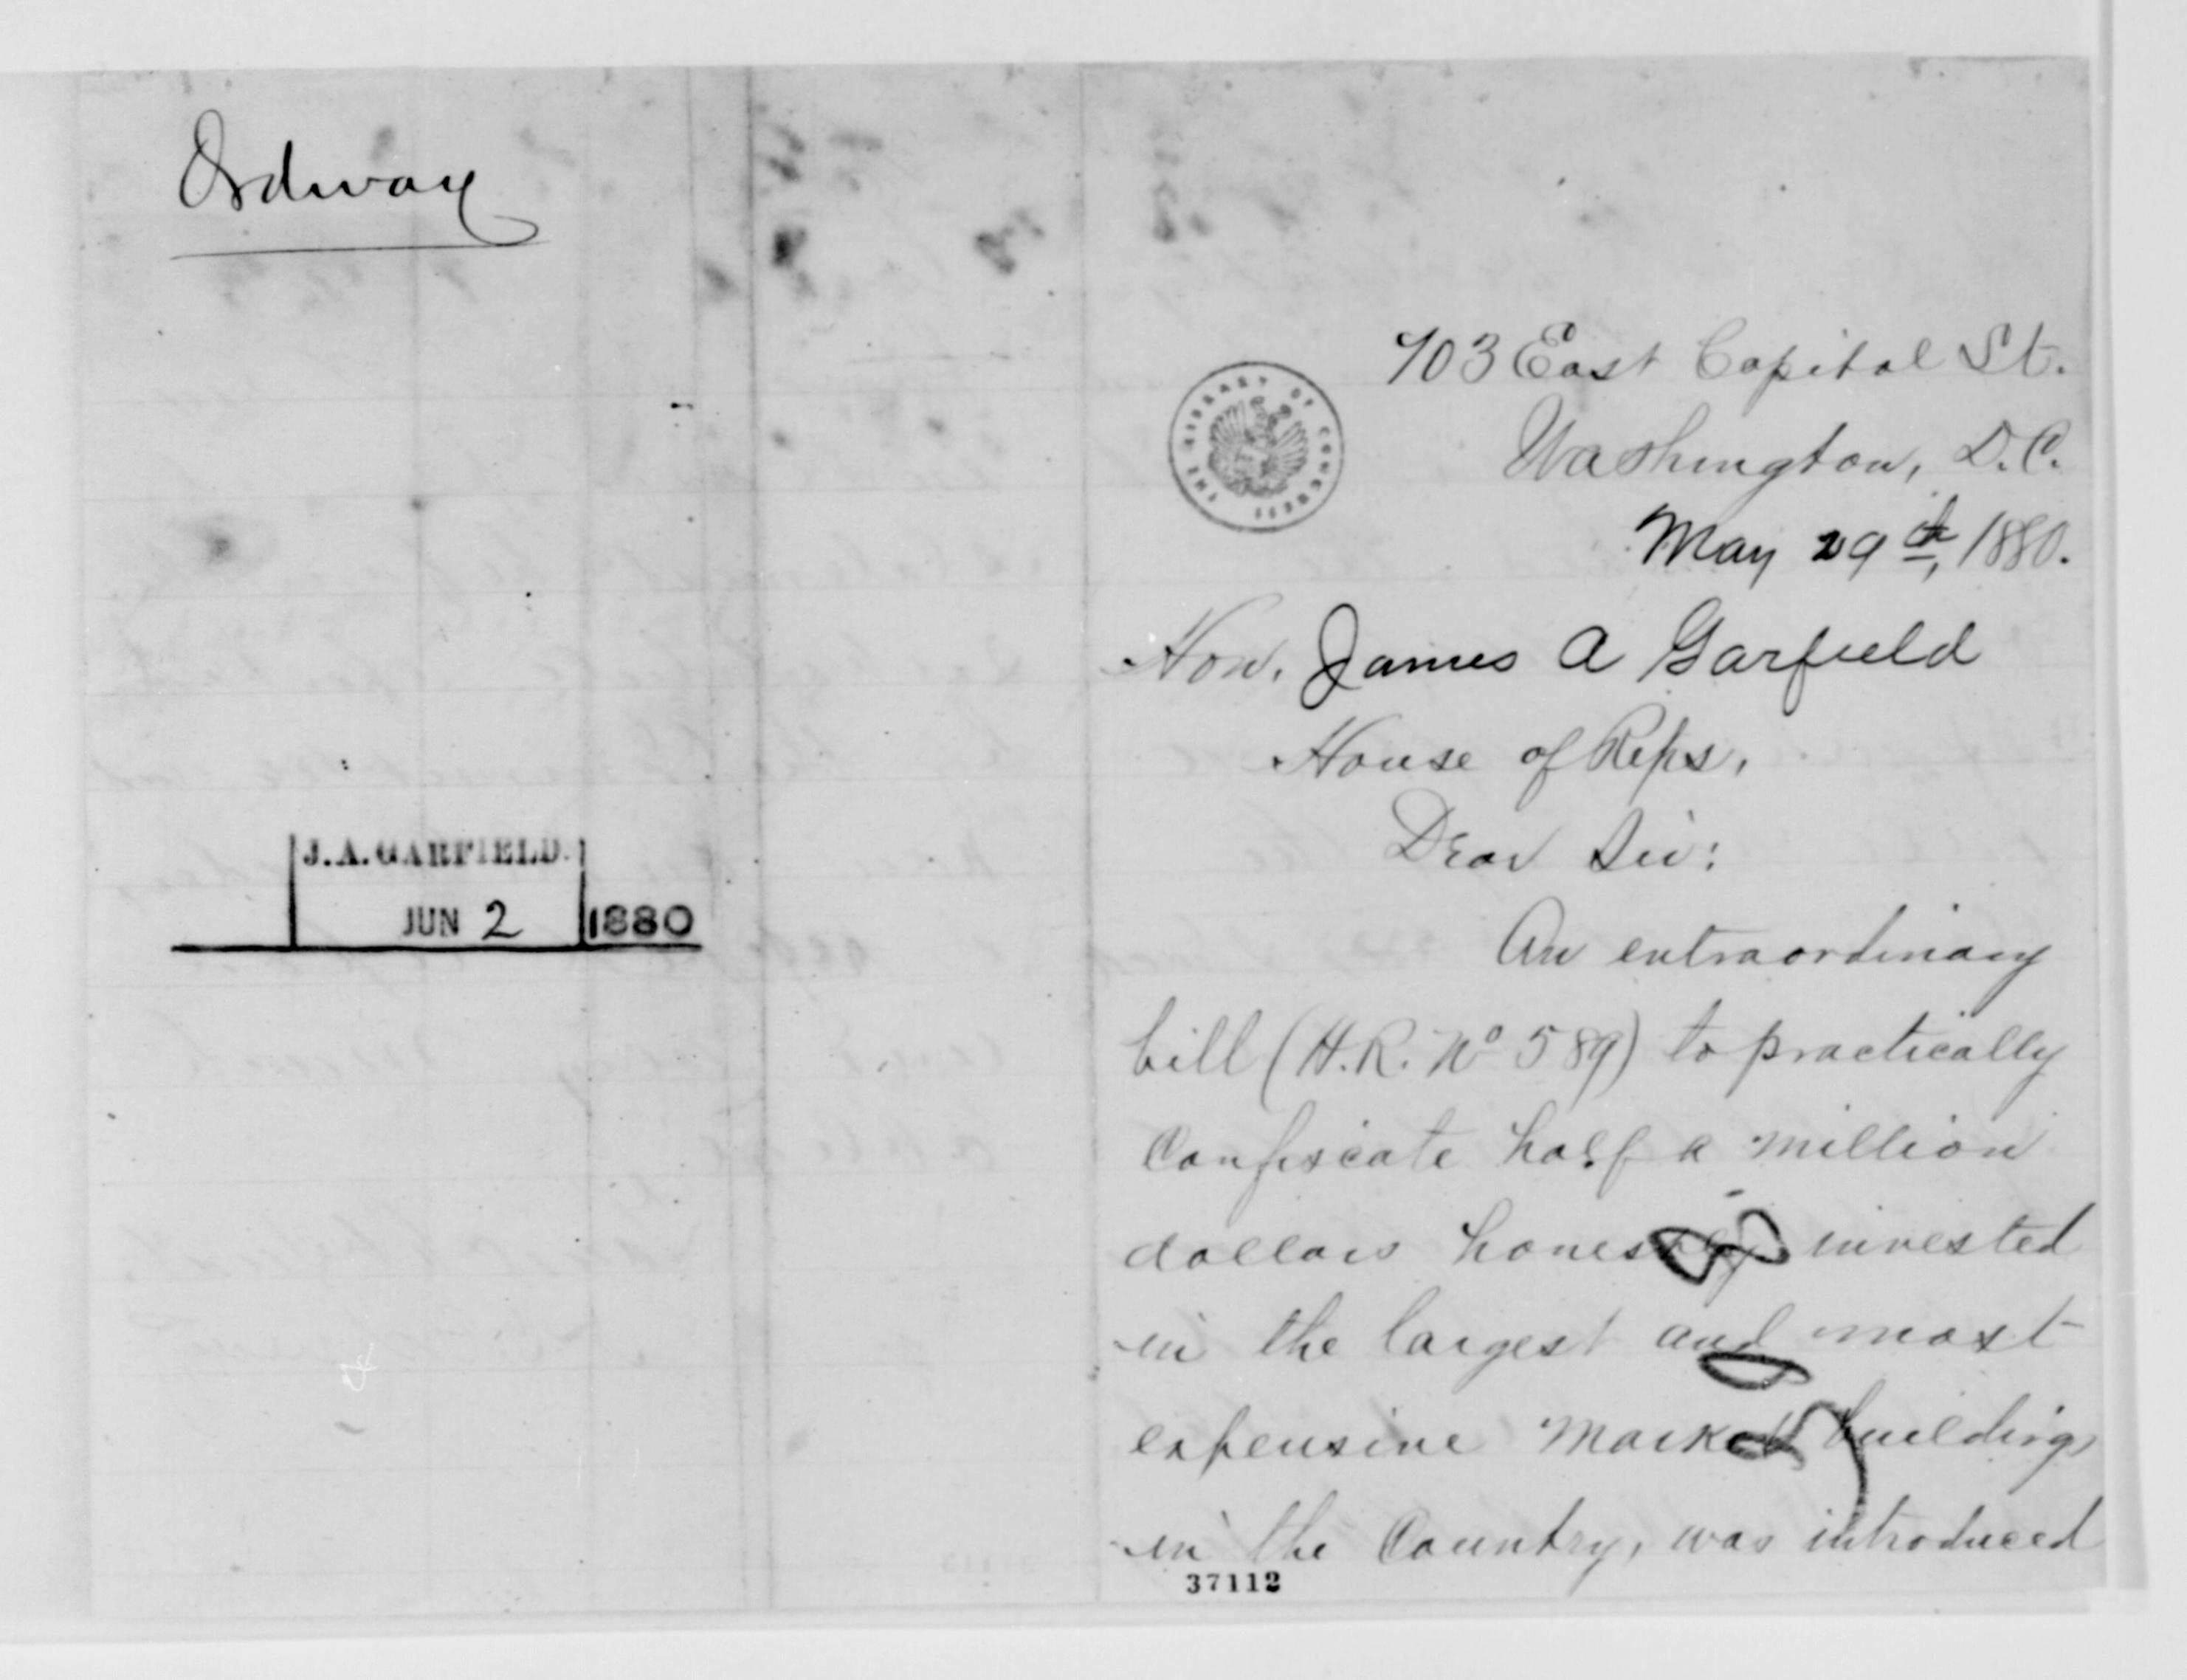 Ordway
J.A. GARFIELD.
JUN 2 1880
703 East Capitol St.
Washington, D.C.
May 29th, 1880.
THE LIBRARY OF CONGRESS
Hon. James A Garfield
House of Reps.
Dear Sir:
An extraordinary
bill (H.R. No 589) to practically
Confiscate half a million
dollars honestly invested
in the largest and most
expensive Market buildings
in the Country, was introduced
37112